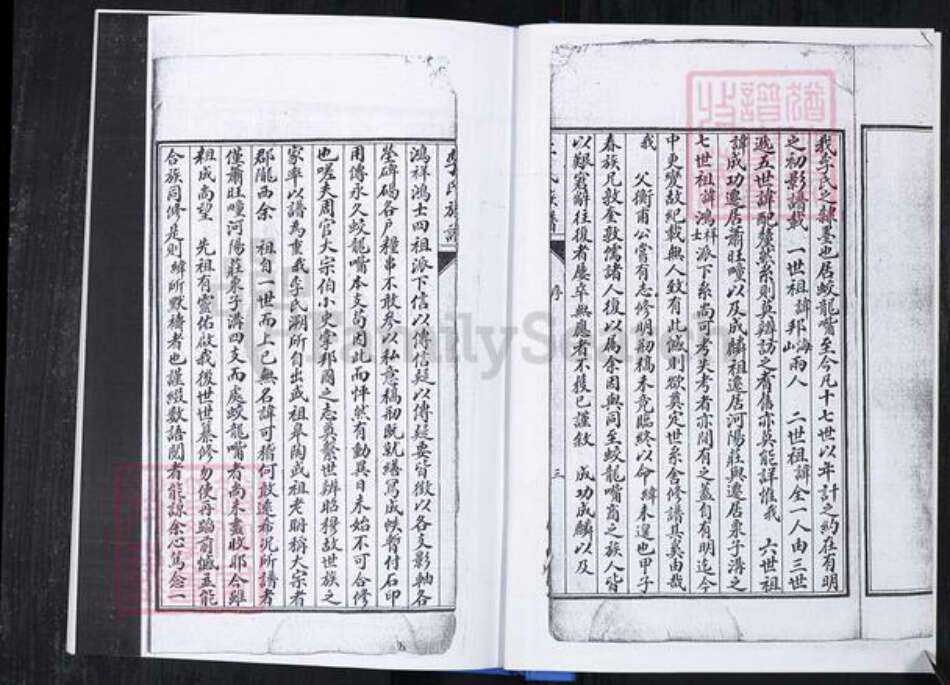 我李氏之隸墨也居蛟龍嘴至今凡十七世以年計之約在有明
之初影譜載 一世祖諱邦海山兩人 二世祖諱全一人由三世
遞五世諱配釐然系則莫辨訪之耆舊亦莫能詳惟我 六世祖
諱成功遷居蕭旺疃以及成麟祖遷居河陽莊與遷居栗子溝之
七世祖諱鴻祥士派下系尚可考矣考者亦間有之蓋自有明迄今
中更變故紀載無人致有此憾則欲奠定世系舍修譜其奚由哉
我 父衡甫公嘗有志修明初稿未竟臨終以命緯未遑也甲子
春族兄敦奎敦儒諸人復以屬余因與同至蛟龍嘴商之族人皆
以艱窘辭往復者屢卒無應者不獲已謹敘 成功成麟以及
李氏族譜 序 三
李氏族譜
鴻祥鴻士四祖派下信以傳信疑以傳疑要皆徵以各支影軸各
塋碑碣各戶種串不敢參以私意稿初既就繕寫成帙暫付石印
用傳永久蛟龍嘴本支苟因此而怦然有動異日未始不可合修
也嗟夫周官大宗伯小史掌邦國之志奠繫世辨昭穆故世族之
家率以譜為重我李氏朔所自出或祖皋陶或祖老聃稱大宗者
郡隴西余 祖自一世而上已無名諱可稽何敢遠布況所譜者
僅蕭旺疃河陽莊栗子溝四支而處蛟龍嘴者尚未盡收耶今雖
粗成尚望 先祖有靈佑啟我後世世纂修勿使再蹈前憾並能
合族同修是則緯所默禱者也謹綴數語閱者能諒余心篤念一
FamilySearch